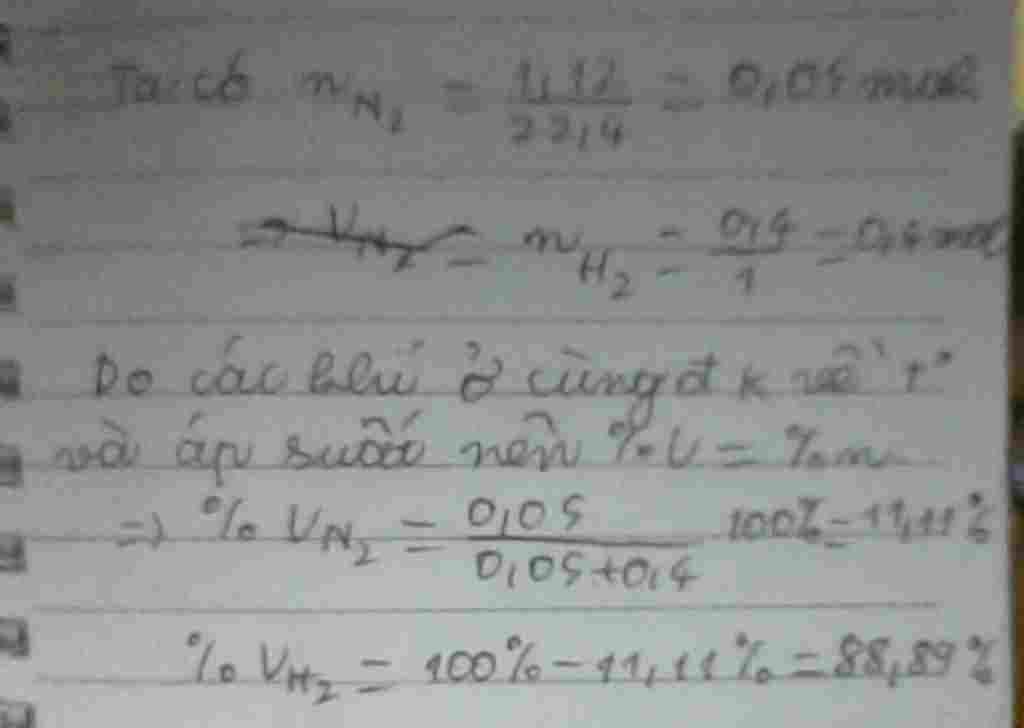 Ta có n N₂ = 1,12 / 22,4 = 0,05 mol
=> V N₂ = n H₂ = 0,4 / 1 = 0,4 mol
Do các khí ở cùng đk về t°
và áp suất nên % V = % n
=> % V N₂ = 0,05 / 0,05+0,4 100% = 11,11%
% V H₂ = 100% - 11,11% = 88,89%